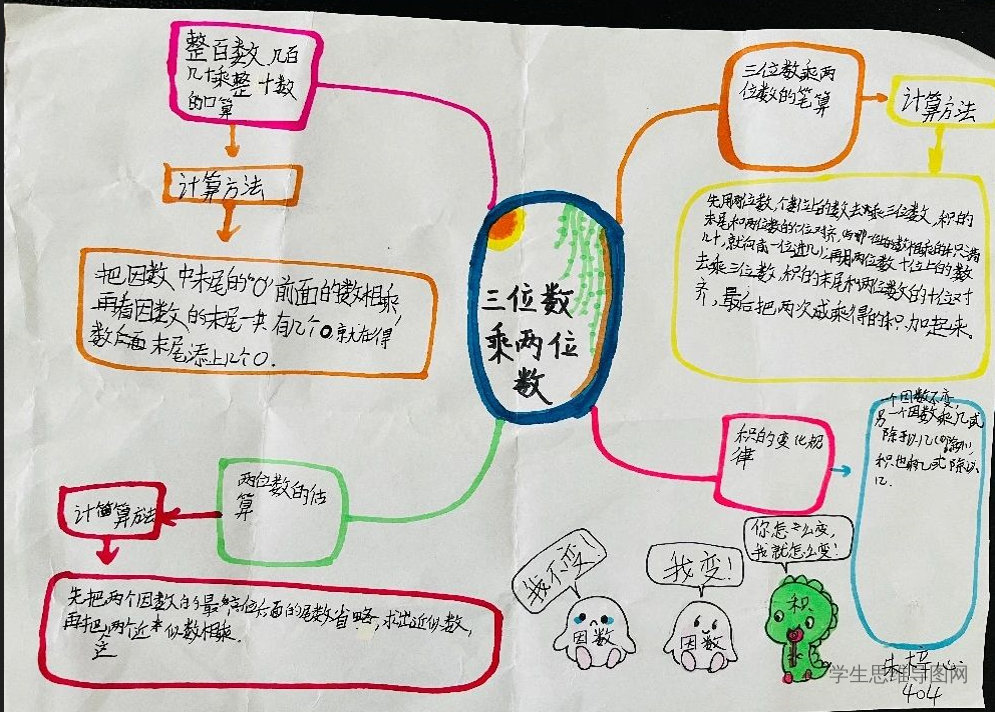 三位数
乘两位
数
整百数、几百
几十乘整十数
的口算
计算方法
把因数中末尾的“0”前面的数相乘,
再看因数的末尾一共有几个0,就在得
数后面末尾添上几个0.
三位数乘两
位数的笔算
计算方法
先用两位数,个位上的数去乘三位数,积的
末尾和两位数的个位对齐,哪一位的数相乘的积满
几十,就向前一位进几;再用两位数十位上的数
去乘三位数,积的末尾和两位数的十位对
齐,最后把两次乘得的积加起来.
两位数的估
算
计算方法
先把两个因数的最高位后面的尾数省略,求出近似数,
再把这两个近似数相乘.
积的变化规
律
一个因数不变,
另一个因数乘几或
除以几(0除外),
积也乘几或除以
几.
我不变!
因数
我变!
因数
你怎么变,
我就怎么变!
积
学生思维导图网
404